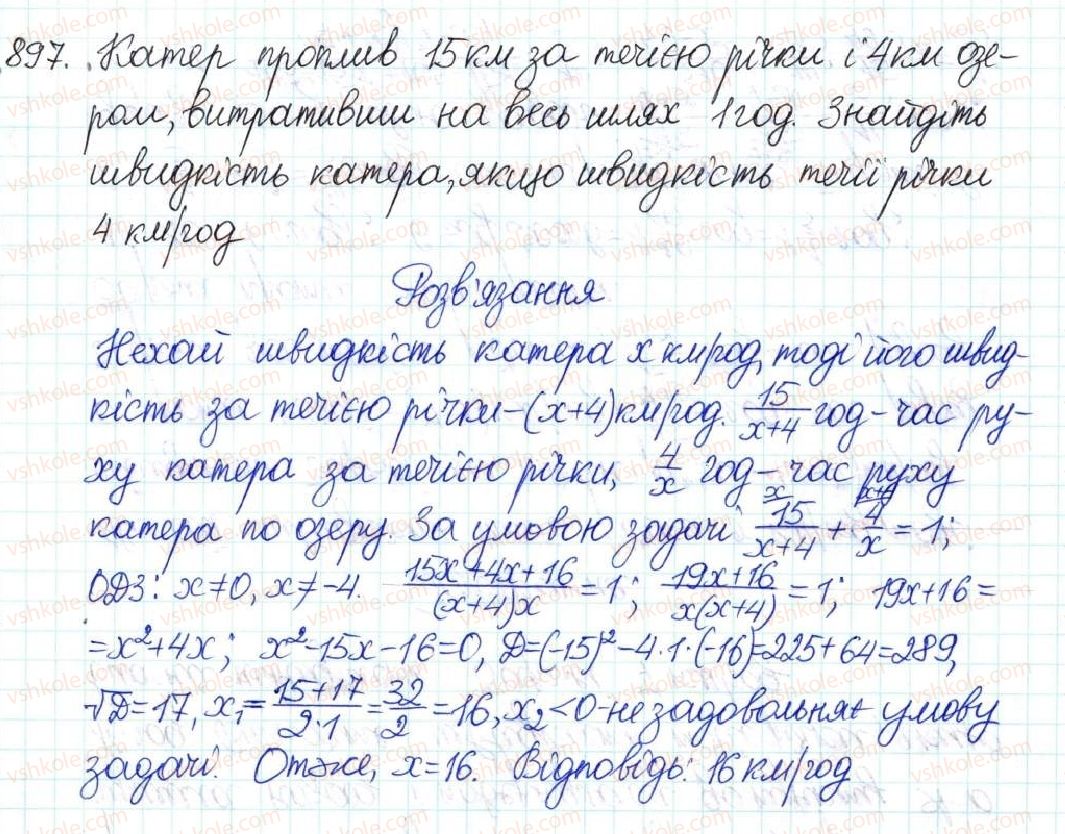 897. Катер проплив 15 км за течією річки і 4 км озе-
ром, витративши на весь шлях 1 год. Знайдіть
швидкість катера, якщо швидкість течії річки
4 км/год
Розв'язання
Нехай швидкість катера x км/год, тоді його швид-
кість за течією річки - (x+4) км/год. 15/(x+4) год - час ру-
ху катера за течією річки, 4/x год - час руху
катера по озеру. За умовою задачі 15/(x+4) + 4/x = 1;
ОДЗ: x≠0, x≠-4. (15x+4x+16)/((x+4)x) = 1; (19x+16)/(x(x+4)) = 1; 19x+16=
=x²+4x; x²-15x-16=0, D=(-15)²-4·1·(-16)=225+64=289,
√D=17, x₁=(15+17)/(2·1)=32/2=16, x₂<0-не задовольняє умову
задачі. Отже, x=16. Відповідь: 16 км/год